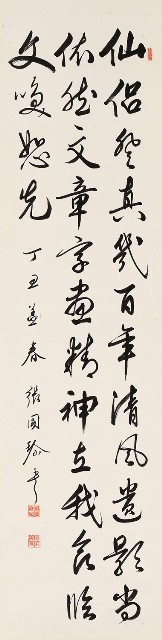 仙侶登真幾百年清風遺影尚
依然文章字畫精神在我臨
文喚恕先
丁丑孟春 張國